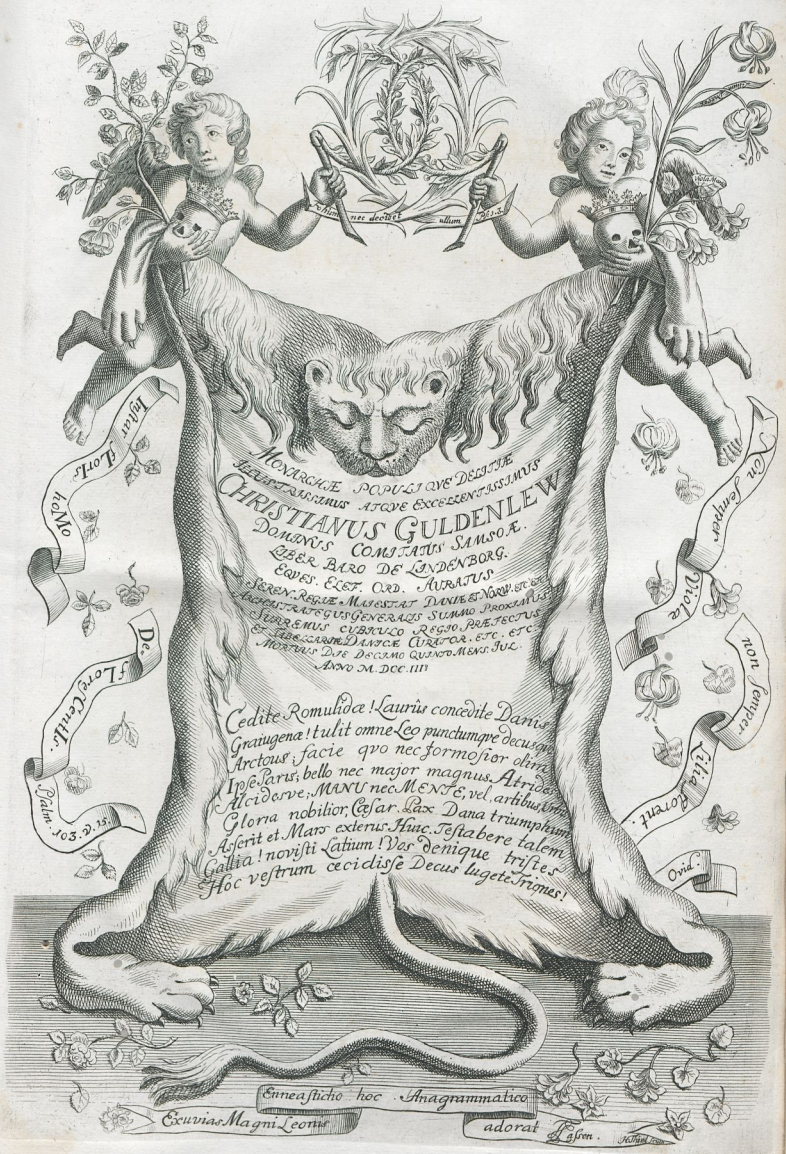 nec decidet ullum
Instar fLorIs hoMo
De-fLoresCentIs.
Psalm. 103. v. 15.
Non semper Violæ
non semper Lilia florent.
Ovid.
MONARCHÆ POPULI QVE DELITIÆ
ILLUSTRISSIMUS ATQVE EXCELLENTISSIMUS
CHRISTIANUS GULDENLEW
DOMINUS COMITATUS SAMSOÆ.
LIBER BARO DE LINDENBORG.
EQVES. ELEF. ORD. AURATUS
SEREN. REGIÆ MAIESTAT DANIÆ ET NORW. ETC. ETC.
ARCHISTRATEGUS GENERALIS SUMMO PROXIMUS
SUPREMUS CUBICULO REGIO. PRÆFECTUS
ET TABELLARIÆ DANICÆ CURATOR. ETC. ETC.
MORTUUS DIE DECIMO QUINTO MENS. JUL.
ANNO M. DCC. IIII
Cedite Romulidæ! Laurus concedite Danis
Graiugenæ! tulit omne Leo punctumqve decusqve
Arctous; facie qvo nec formosior olim
Ipse Paris; bello nec major magnus Atrides
Alcidesve; MANU nec MENTE, vel artibus,
Gloria nobilior, Cæsar. Pax Dana triumphum
Asserit et Mars exterus Huic. Testabere talem
Gallia! novisti Latium! Vos denique tristes
Hoc vestrum cecidisse Decus lugete Trignes!
Enneasticho hoc Anagrammatico
Exuvias Magni Leonis adorat